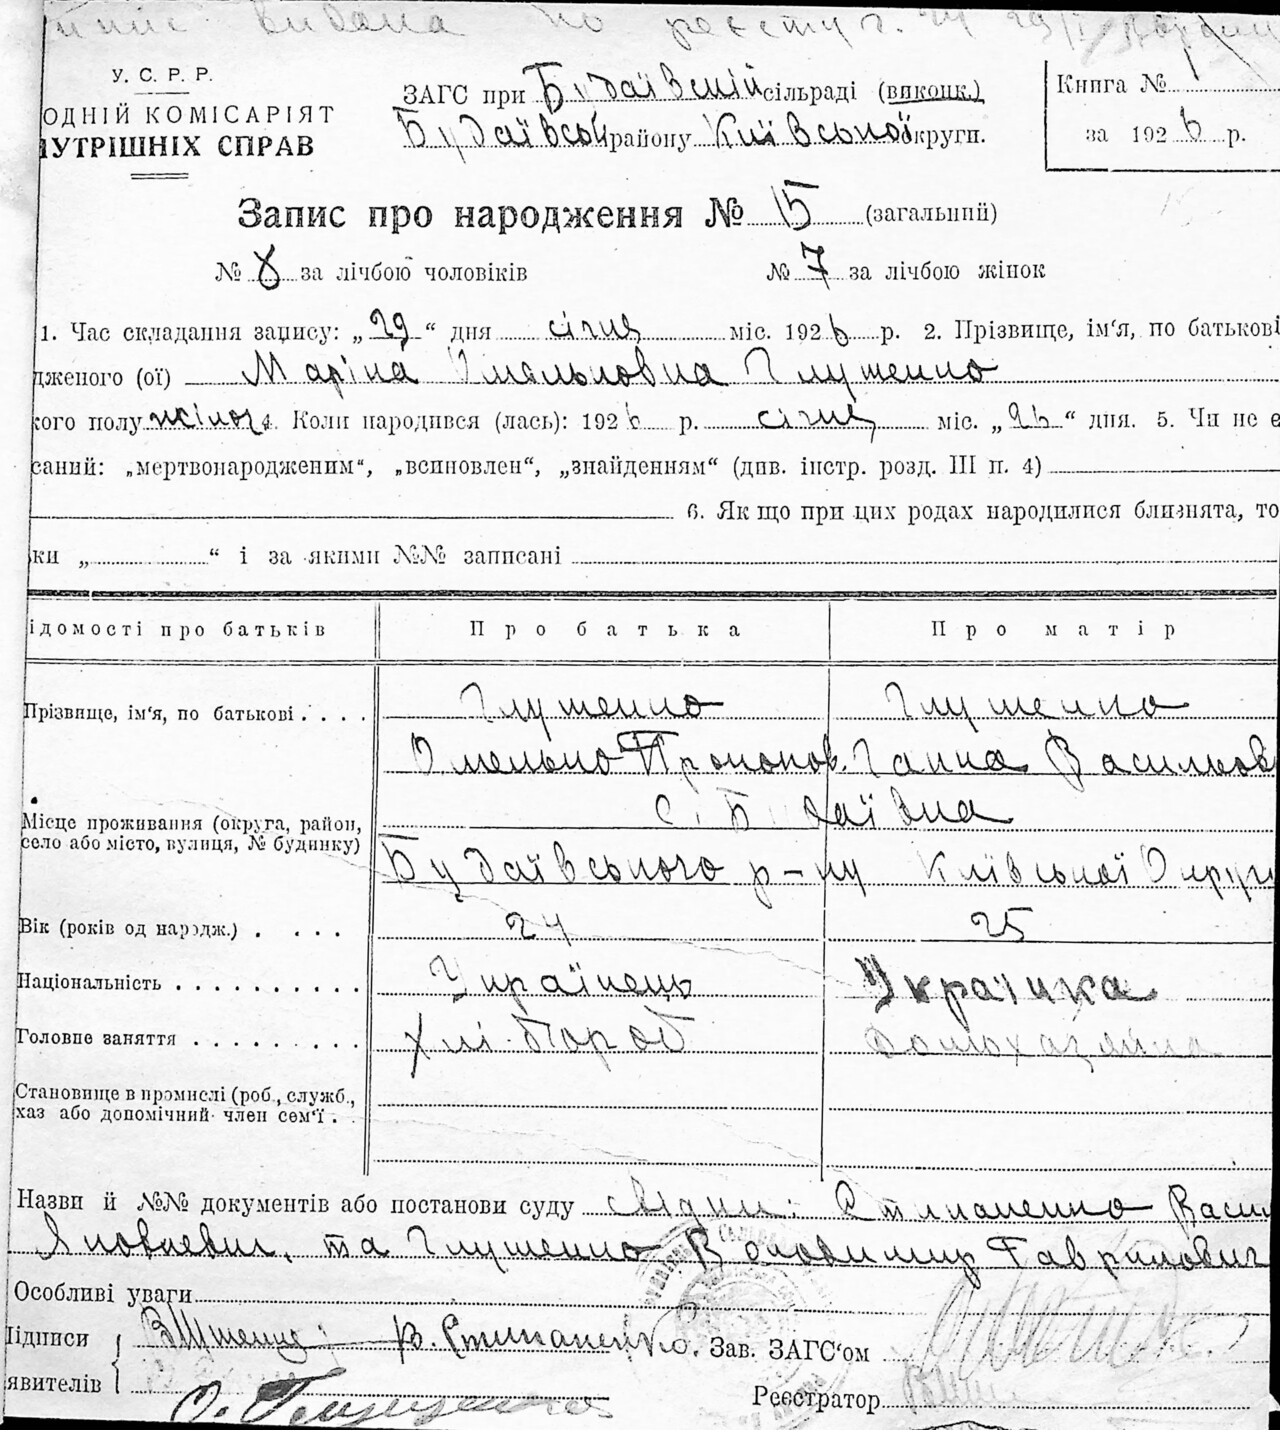 видана по реєстру г.
У. С. Р. Р.
ОДНІЙ КОМІСАРІЯТ
УТРІШНІХ СПРАВ
ЗАГС при Будаївській сільраді (виконк.)
Будаївськ району Київської округи.
Книга № 1
за 1926 р.
Запис про народження № 15 (загальний)
№ 8 за лічбою чоловіків № 7 за лічбою жінок
1. Час складання запису: „29“ дня січня міс. 1926 р. 2. Прізвище, ім‘я, по батькові
дженого (ої) Маріна Омельковна Глушенко
кого полу жіноч. 4. Коли народився (лась): 1926 р. січня міс. „26“ дня. 5. Чи не є
саний: „мертвонародженим“, „всиновлен“, „знайденням“ (див. інстр. розд. III п. 4)
6. Як що при цих родах народилися близнята, то
ки „ “ і за якими №№ записані
ідомості про батьків Про батька Про матір
Прізвище, ім‘я, по батькові Глушенко Глушенко
Омелько Прокопов. Ганна Васильков
С. Будаївка
Місце проживання (округа, район,
село або місто, вулиця, № будинку) Будаївського р-ну Київської Округи
Вік (років од нарэдж.) 24 25
Національність Українець Українка
Головне заняття Хлібороб Домохазяйка
Становище в промислі (роб., служб.,
хаз або допомічний член сем‘ї
Назви й №№ документів або постанови суду свідки: Степаненко Васил
Яковлевич, та Глушенко Володимир Гаврилович
Особливі уваги
Підписи В. Степаненко. Зав. ЗАГС‘ом
явителів О. Реєстратор